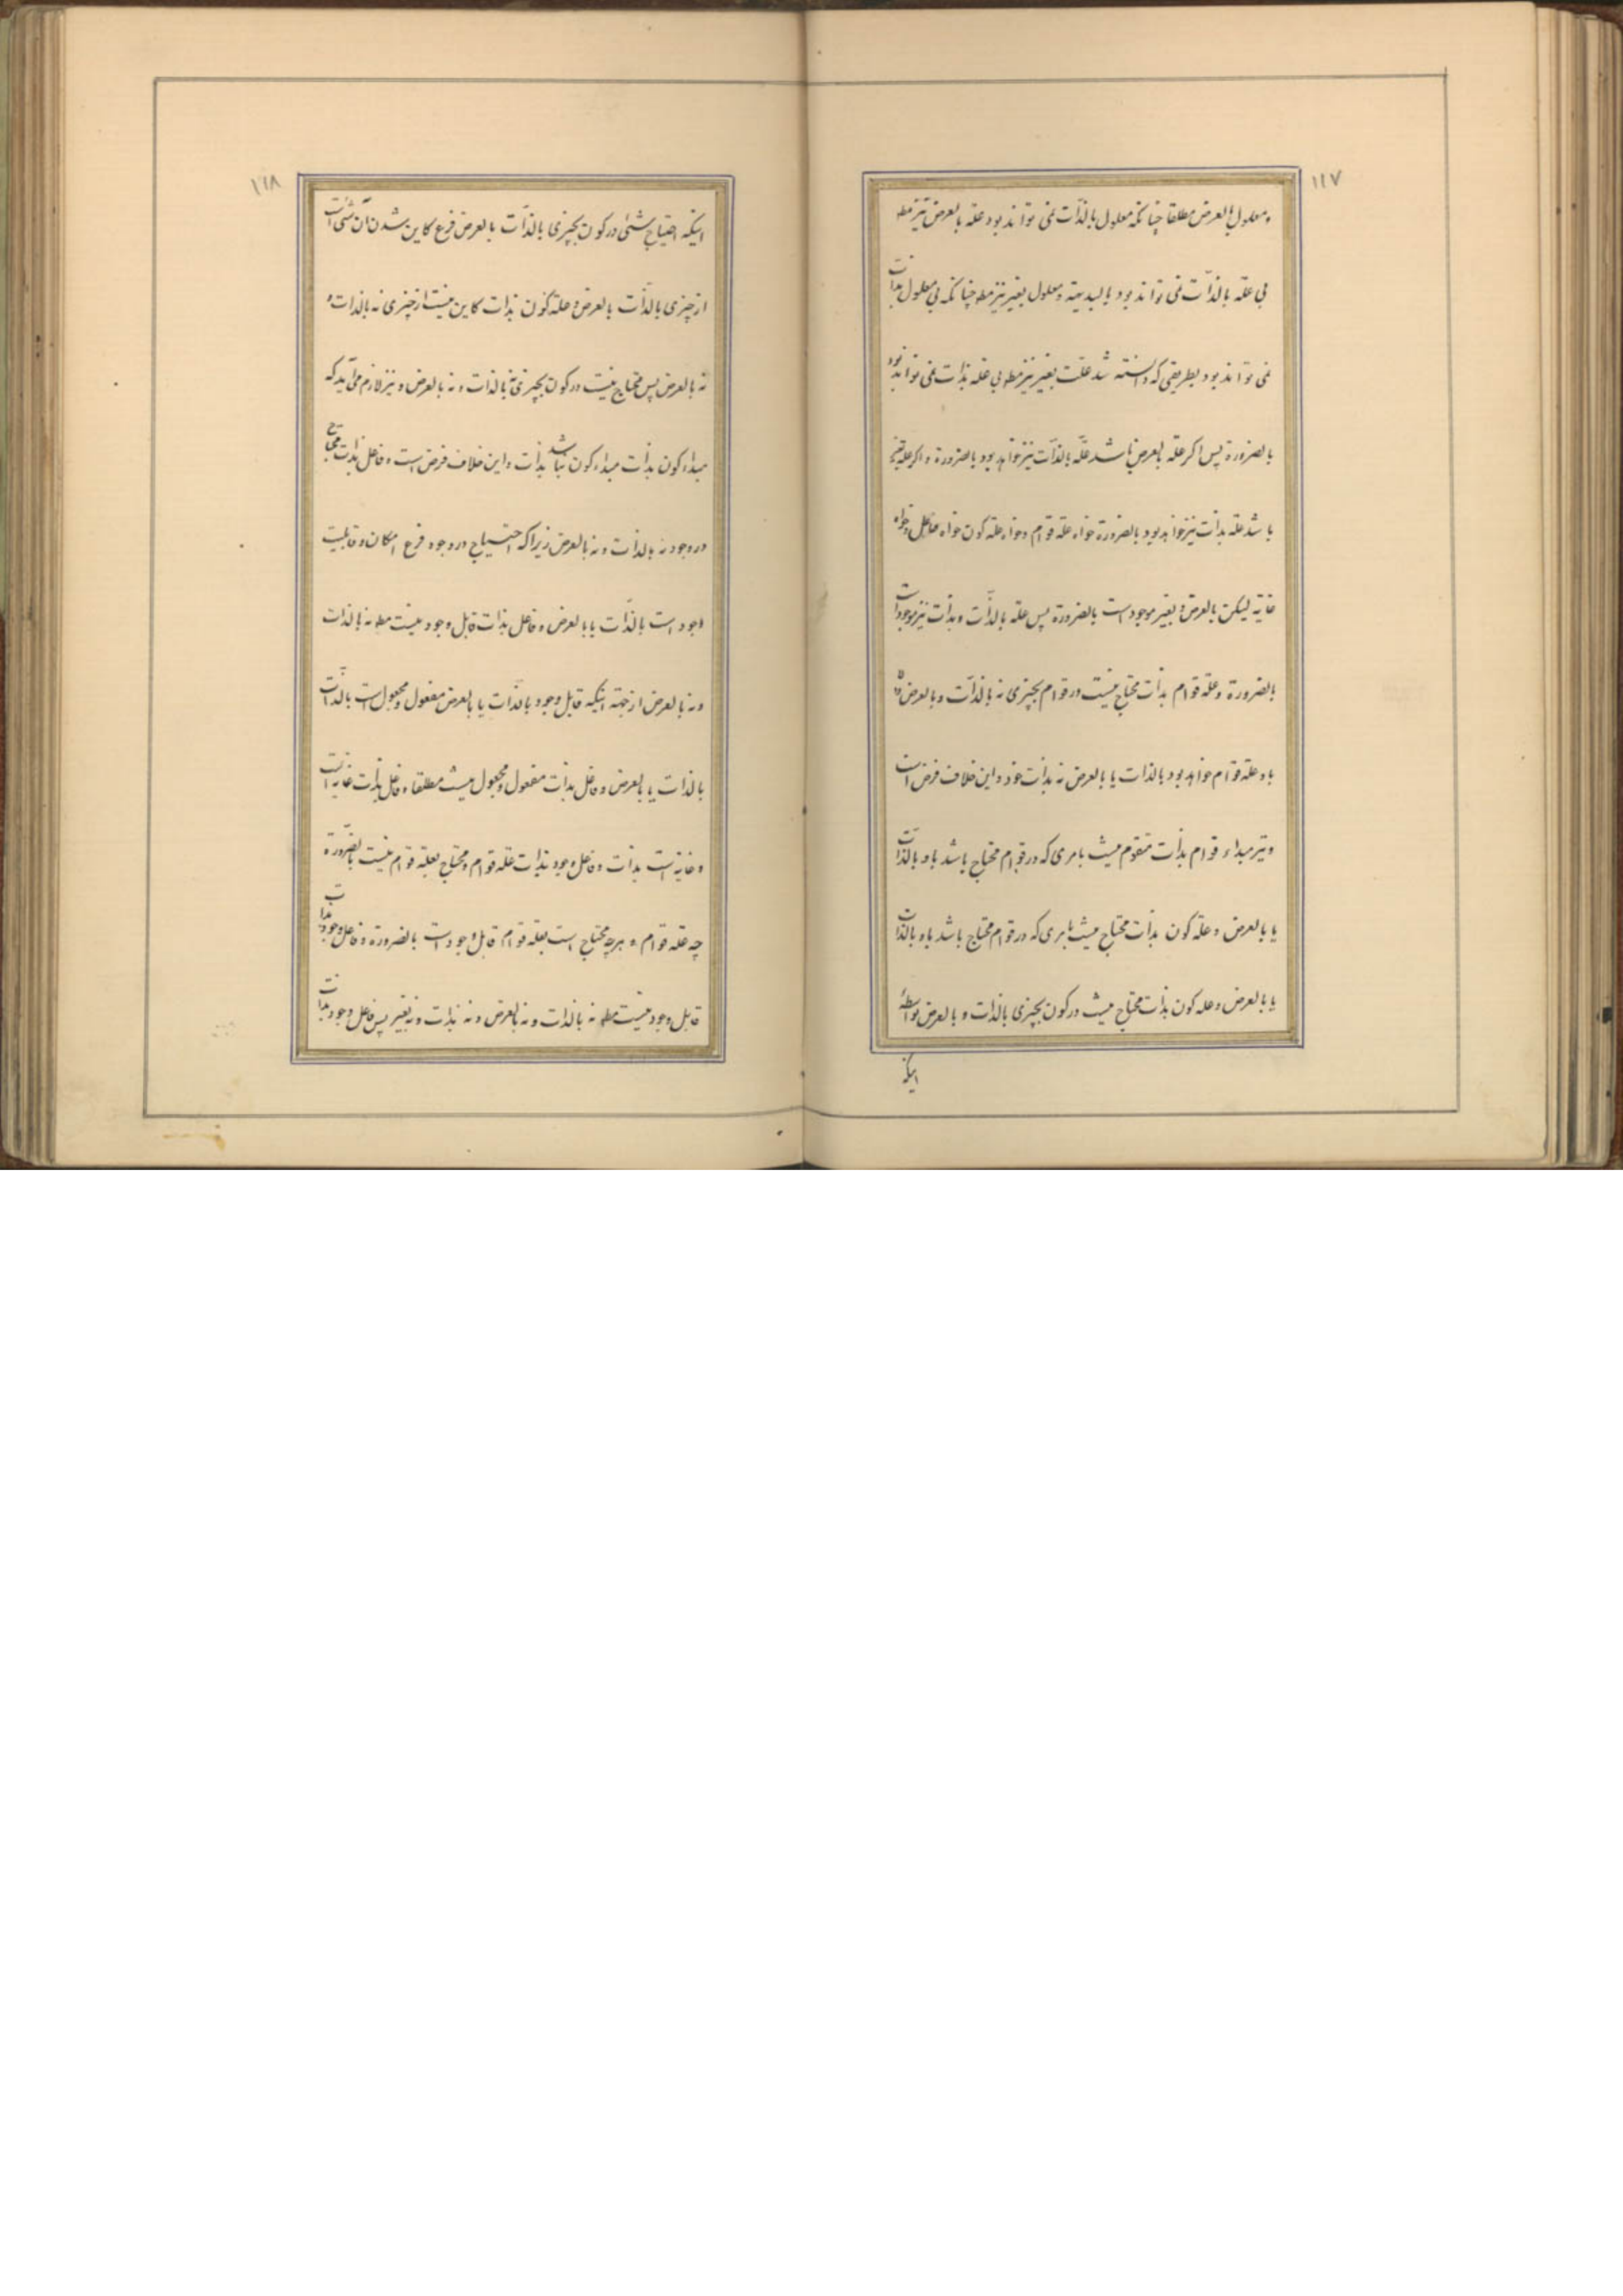 ١١٧
و معلول بالعرض مطلقا چنانکه معلول بالذّات نمی تواند بود علّه بالعرض نیز مطه
بی علّه بالذّات نمی تواند بود بالبدیهة و معلول بغیر نیز مطه چنانکه بی معلول بذات
نمی تواند بود بطریقی که دانسته شد علّت بغیر نیز مطه بی علّه بذات نمی تواند بود
بالضرورة پس اگر علّه بالعرض باشد علّه بالذّات نیز خواهد بود بالضرورة و اگر علّه بغیر
باشد علّه بذات نیز خواهد بود بالضرورة خواه علّه قوام و خواه علّه کون خواه فاعل و خواه
غایة لیکن بالعرض و بغیر موجود است بالضرورة پس علّه بالذّات و بذات نیز موجود است
بالضرورة و علّه قوام بذات محتاج نیست در قوام بچیزی نه بالذّات و بالعرض
با و علّه قوام خواهد بود بالذات یا بالعرض نه بذات خود و این خلاف فرض است
و نیز مبداء قوام بذات متقوم نیست بامری که در قوام محتاج باشد باو بالذّات
یا بالعرض و علّه کون بذات محتاج نیست بامری که در قوام محتاج باشد باو بالذّات
یا بالعرض و علّه کون بذات محتاج نیست در کون بچیزی بالذات و بالعرض بواسطهٔ
اینکه
١١٨
اینکه احتیاج شئی در کون بچیزی بالذّات یا بالعرض فرع کاین شدن آن شئی است
از چیزی بالذّات یا بالعرض و علّه کون بذات کاین نیست از چیزی نه بالذات و
نه بالعرض پس محتاج نیست در کون بچیزی نه بالذات و نه بالعرض و نیز لازم می آید که
مبداء کون بذات مبداء کون نباشد بذات و این خلاف فرض است و فاعل بذات محتاج
در وجود نه بالذات و نه بالعرض زیرا که احتیاج در وجود فرع امکان و قابلیت
وجود است بالذّات یا بالعرض و فاعل بذات قابل وجود نیست مطه نه بالذات
و نه بالعرض از جهة اینکه قابل وجود بالذّات یا بالعرض مفعول و مجعول است بالذّات
بالذات یا بالعرض و فاعل بذات مفعول و مجعول نیست مطلقا و فاعل بذات غایة است
و غایة است بذات و فاعل وجود بذات علّه قوام و محتاج بعلّه قوام نیست بالضّرورة
چه علّه قوام و هرچه محتاج است بعلّه قوام قابل وجود است بالضرورة و فاعل وجود بذات
قابل وجود نیست مطه نه بالذات و نه بالعرض و نه بذات و نه بغیر پس فاعل وجود بذات